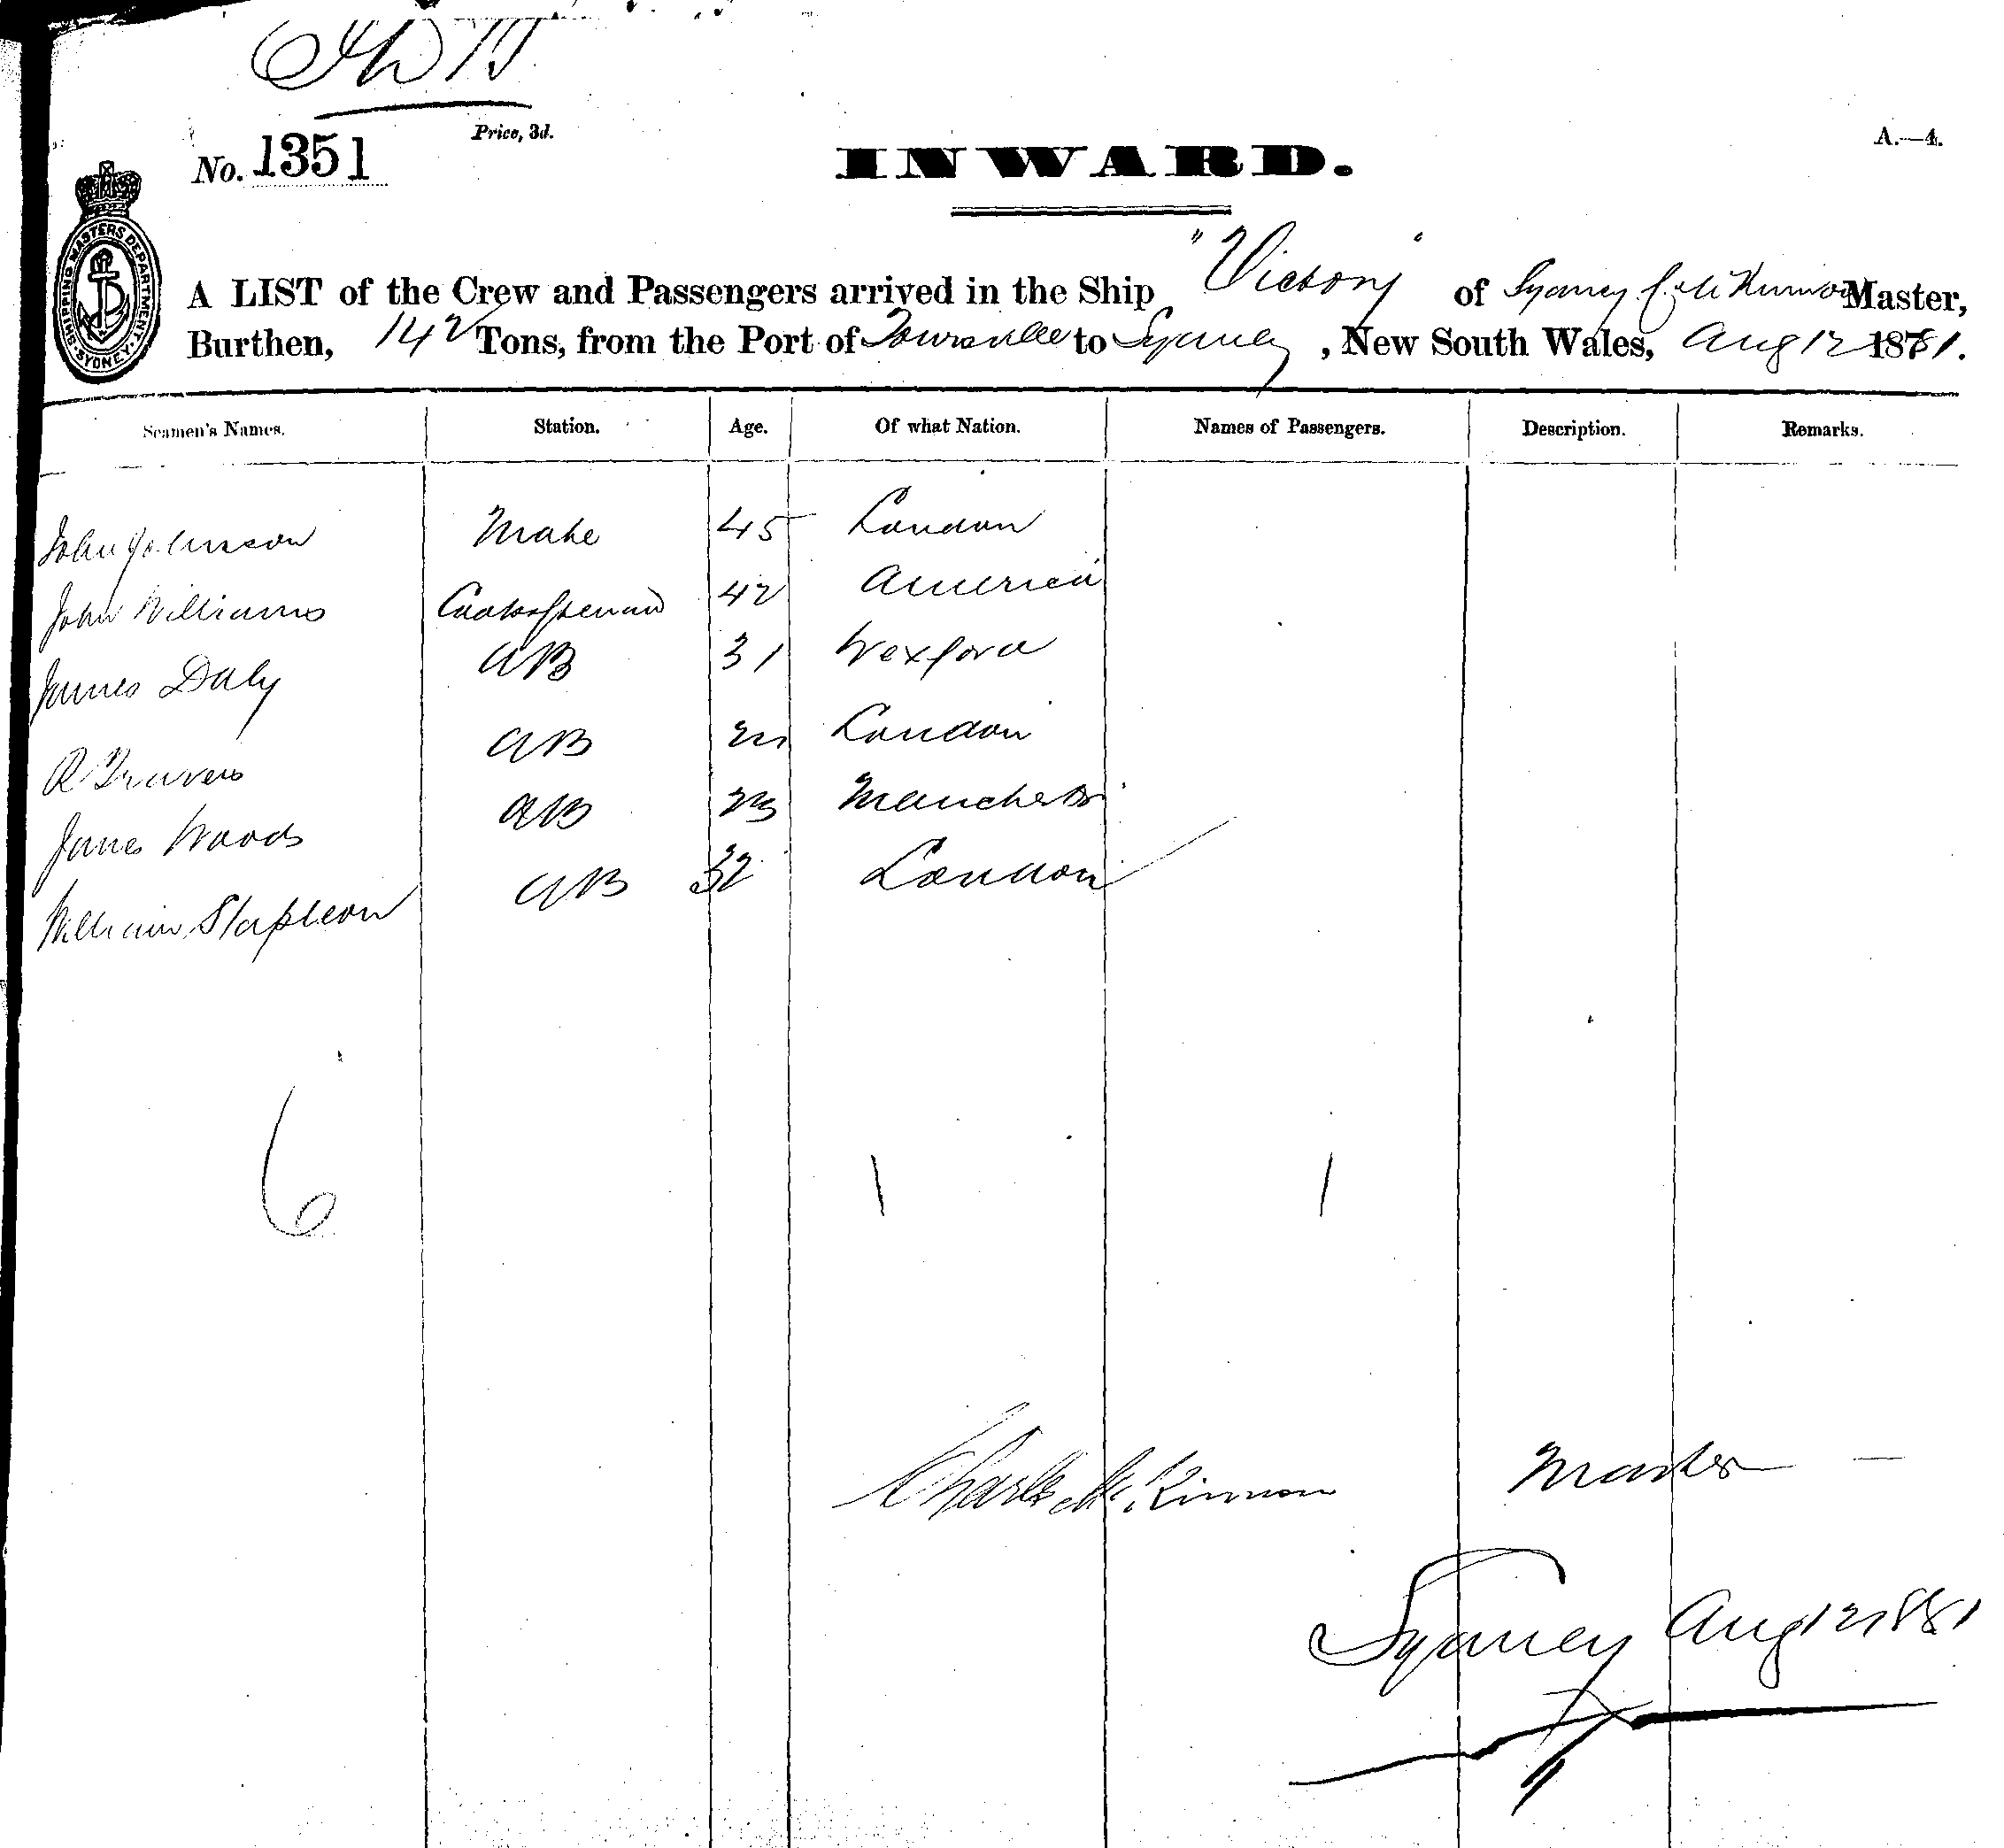 No. 1351
Price, 3d.
INWARD.
A.—4.
SHIPPING MASTERS DEPARTMENT SYDNEY
A LIST of the Crew and Passengers arrived in the Ship "Victory" of Sydney C. McKinnon Master,
Burthen, 142 Tons, from the Port of Townsville to Sydney, New South Wales, Aug 12 1881.
Seamen's Names. Station. Age. Of what Nation. Names of Passengers. Description. Remarks.
John Johnson Mate 45 London
John Williams Cook & Steward 42 America
James Daly AB 31 Wexford
R Travers AB London
James Woods AB 23 Manchester
William Stapleon AB 32 London
6 \ /
Charles McKinnon Master
Sydney Aug 12 1881